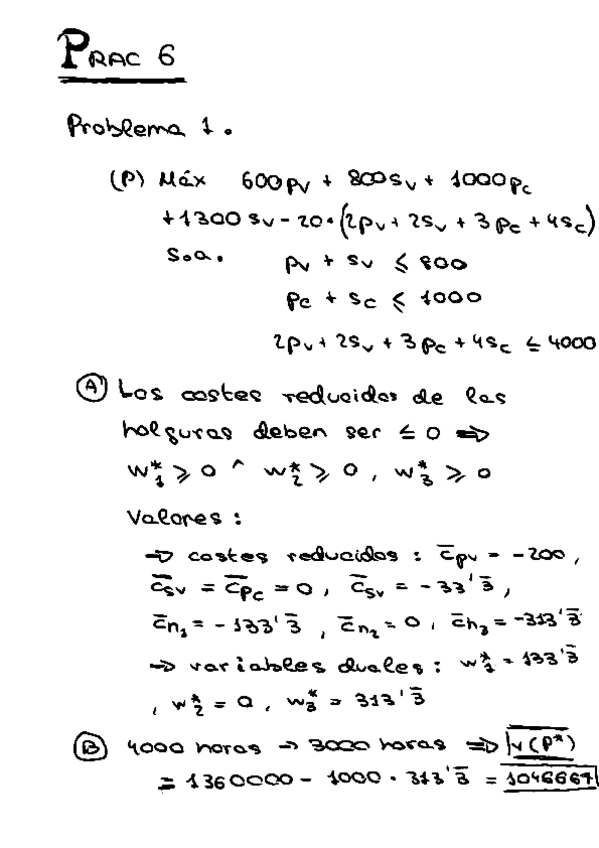 PRAC 6
Problema 1.
(P) Máx 600pv + 800sv + 1000pc
+1300sv - 20·(2pv + 2sv + 3pc + 4sc)
s.a. pv + sv ≤ 800
pc + sc ≤ 1000
2pv + 2sv + 3pc + 4sc ≤ 4000
(A) Los costes reducidos de las
holguras deben ser ≤ 0 ⇒
w₁* ≥ 0 ^ w₂* ≥ 0, w₃* ≥ 0
Valores:
→ costes reducidos: c̄pv = -200,
c̄sv = c̄pc = 0, c̄sv = -33'3̄,
c̄n₁ = -133'3̄, c̄n₂ = 0, c̄h₃ = -313'3̄
→ variables duales: w₁* = 133'3̄
, w₂* = 0, w₃* = 313'3̄
(B) 4000 horas → 3000 horas ⇒ v(P*)
= 1360000 - 1000 · 313'3̄ = 1046667